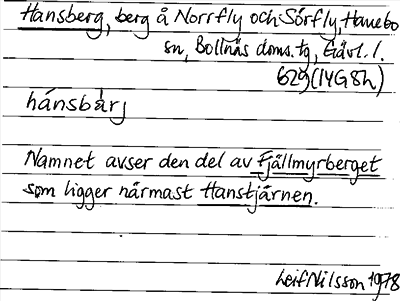 Hansberg, berg å Norrfly och Sörfly, Hanebo
sn, Bollnäs doms.tg, Gävl. l.
629 (14G8h)
hánsbärj
Namnet avser den del av Fjällmyrberget
som ligger närmast Hanstjärnen.
Leif Nilsson 1978